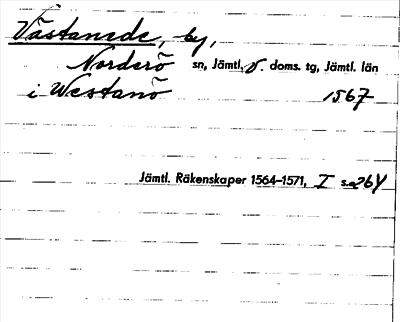 Västanede, by,
Norderö sn, Jämtl. v. doms. tg, Jämtl. län
i Westanö 1567
Jämtl. Räkenskaper 1564-1571, I s. 264